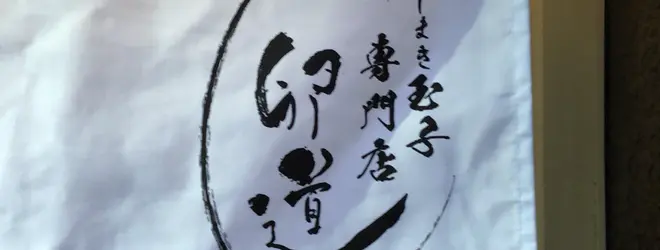 しまき玉子
専門店
卵道